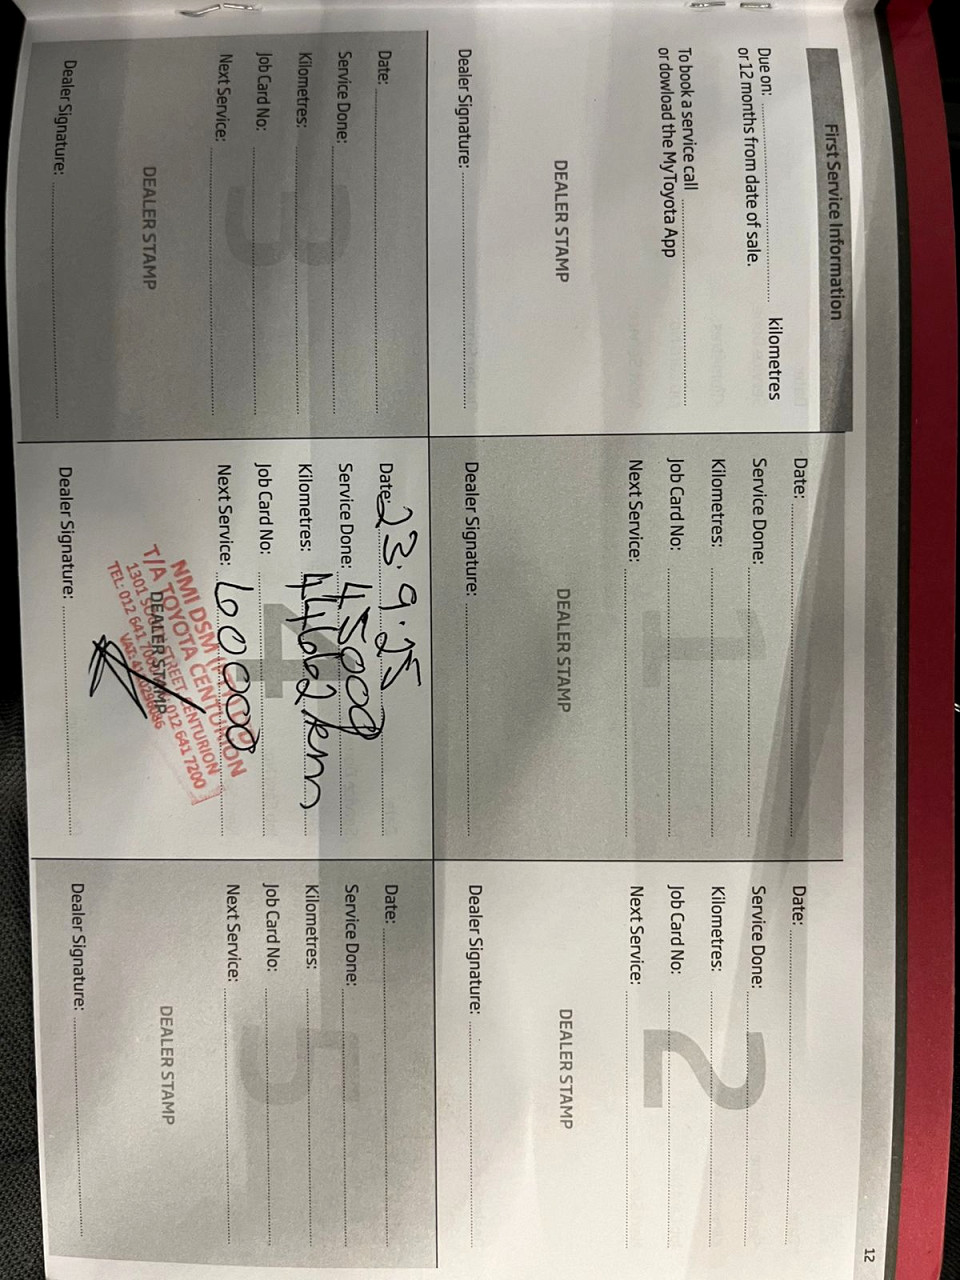 First Service Information
Due on: kilometres
or 12 months from date of sale.
To book a service call
or dowload the MyToyota App
DEALER STAMP
Dealer Signature:
Date:
Service Done:
Kilometres:
Job Card No:
Next Service:
1
DEALER STAMP
Dealer Signature:
Date:
Service Done:
Kilometres:
Job Card No:
Next Service:
2
DEALER STAMP
Dealer Signature:
Date:
Service Done:
Kilometres:
Job Card No:
Next Service:
3
DEALER STAMP
Dealer Signature:
Date: 23.9.25
Service Done: 45000
Kilometres: 44662km
Job Card No:
Next Service: 60000
4
NMI DSM
T/A TOYOTA CENTURION
DEALER STAMP
1301 STREET CENTURION
TEL: 012 641 012 641 7200
VAT:
Dealer Signature:
Date:
Service Done:
Kilometres:
Job Card No:
Next Service:
5
DEALER STAMP
Dealer Signature:
12